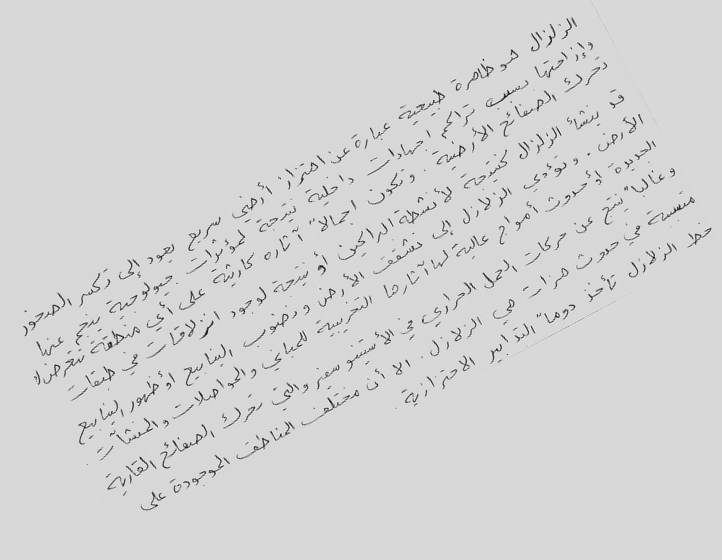 الزلزال هو ظاهرة طبيعية عبارة عن اهتزاز أرضي سريع يعود إلى تكسر الصخور
وإزاحتها بسبب تراكم اجهادات داخلية نتيجة لمؤثرات جيولوجية ينجم عنها
تحرك الصفائح الأرضية . وتكون اجمالاً آثاره كارثية على أي منطقة تتعرض له
قد ينشأ الزلزال كنتيجة لأنشطة البراكين أو نتيجة لوجود انزلاقات في طبقات
الأرض . وتؤدي الزلازل إلى تشقق الأرض ونضوب الينابيع أو ظهور الينابيع
الجديدة أو حدوث أمواج عالية لها آثارها التخريبية للمباني والمواصلات والمنشآت .
وغالباً ينتج عن حركات الحمل الحراري في الأستينوسفير والتي تحرك الصفائح القارية
متسببة في حدوث هزات هي الزلازل . الا أن مختلف المناطق الموجودة على
خط الزلازل تأخذ دوماً التدابير الاحترازية .